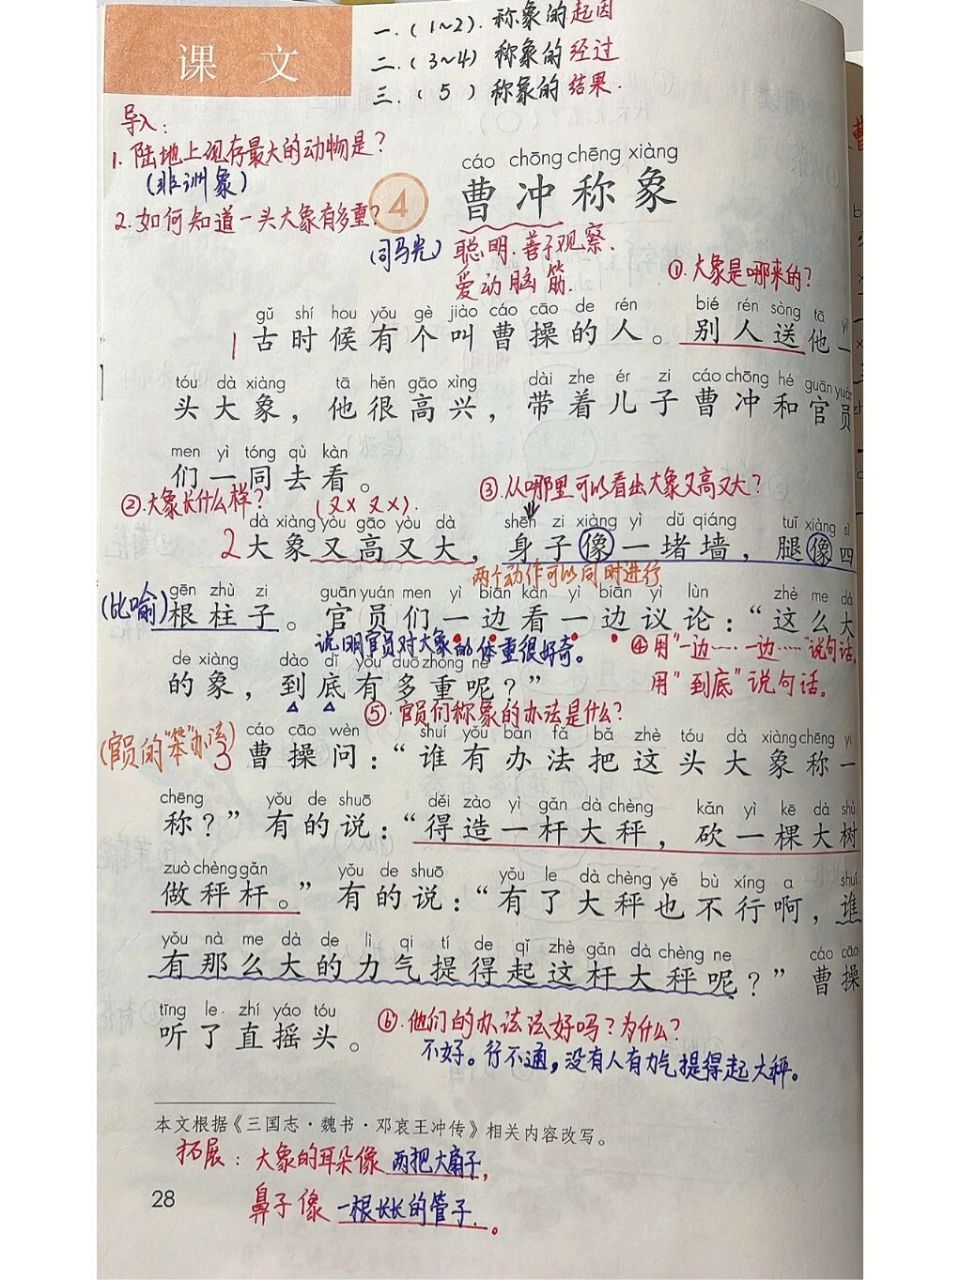 课 文
一.(1~2).称象的起因
二.(3~4) 称象的经过
三.(5) 称象的结果.
导入:
1.陆地上现存最大的动物是?
(非洲象)
2.如何知道一头大象有多重?
cáo chōng chēng xiàng
4 曹冲称象
(司马光) 聪明.善于观察.
爱动脑筋.
①.大象是哪来的?
gǔ shí hou yǒu gè jiào cáo cāo de rén bié rén sòng tā yì
1 古时候有个叫曹操的人。别人送他一
tóu dà xiàng tā hěn gāo xìng dài zhe ér zi cáo chōng hé guān yuán
头大象，他很高兴，带着儿子曹冲和官员
men yì tóng qù kàn
们一同去看。
②.大象长什么样? (又X又X).
③.从哪里可以看出大象又高又大?
dà xiàng yòu gāo yòu dà shēn zi xiàng yì dǔ qiáng tuǐ xiàng sì
2 大象又高又大，身子像一堵墙，腿像四
两个动作可以同时进行
gēn zhù zi guān yuán men yì biān kàn yì biān yì lùn zhè me dà
(比喻) 根柱子。官员们一边看一边议论：“这么大
说明官员对大象的体重很好奇。
④用"一边……一边……"说句话。
de xiàng dào dǐ yǒu duō zhòng ne
的象，到底有多重呢？”
用"到底"说句话。
⑤.官员们称象的办法是什么?
(官员的"笨"办法)
cáo cāo wèn shuí yǒu bàn fǎ bǎ zhè tóu dà xiàng chēng yì
3 曹操问：“谁有办法把这头大象称一
chēng yǒu de shuō děi zào yì gǎn dà chèng kǎn yì kē dà shù
称？”有的说：“得造一杆大秤，砍一棵大树
zuò chèng gǎn yǒu de shuō yǒu le dà chèng yě bù xíng a shuí
做秤杆。”有的说：“有了大秤也不行啊，谁
yǒu nà me dà de lì qi tí de qǐ zhè gǎn dà chèng ne cáo cāo
有那么大的力气提得起这杆大秤呢？”曹操
tīng le zhí yáo tóu
听了直摇头。
⑥.他们的办法好吗?为什么?
不好。行不通，没有人有力气提得起大秤。
本文根据《三国志·魏书·邓哀王冲传》相关内容改写。
拓展:大象的耳朵像 两把大扇子,
鼻子像 一根长长的管子.。
28